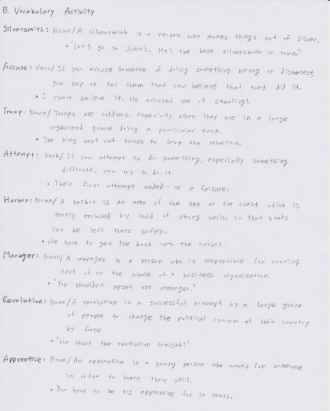 B. Vocabulary Activity
Silversmith: Noun/ A silversmith is a person who makes things out of silver.
• "Let's go to John's. He's the best silversmith in town"
Accuse: Verb/ If you accuse someone of doing something wrong or dishonest,
you say or tell them that you believe that they did it.
• I can't believe it. He accused me of stealing!
Troop: Noun/ Troops are soldiers, especially when they are in a large
organized group doing a particular task.
• The king sent out troops to stop the rebellion.
Attempt: Verb/ If you attempt to do something, especially something
difficult, you try to do it.
• Their first attempt ended in a failure.
Harbor: Noun/ A harbor is an area of the sea at the coast which is
partly enclosed by land or strong walls, so that boats
can be left there safely.
• We have to get the boat into the harbor.
Manager: Noun/ A manager is a person who is responsible for running
part of or the whole of a business organization.
• "You shouldn't upset our manager."
Revolution: Noun/ A revolution is a successful attempt by a large group
of people to change the political system of their country
by force.
• "We start the revolution tonight!"
Apprentice: Noun/ An apprentice is a young person who works for someone
in order to learn their skill.
• You have to be his apprentice for 10 years.